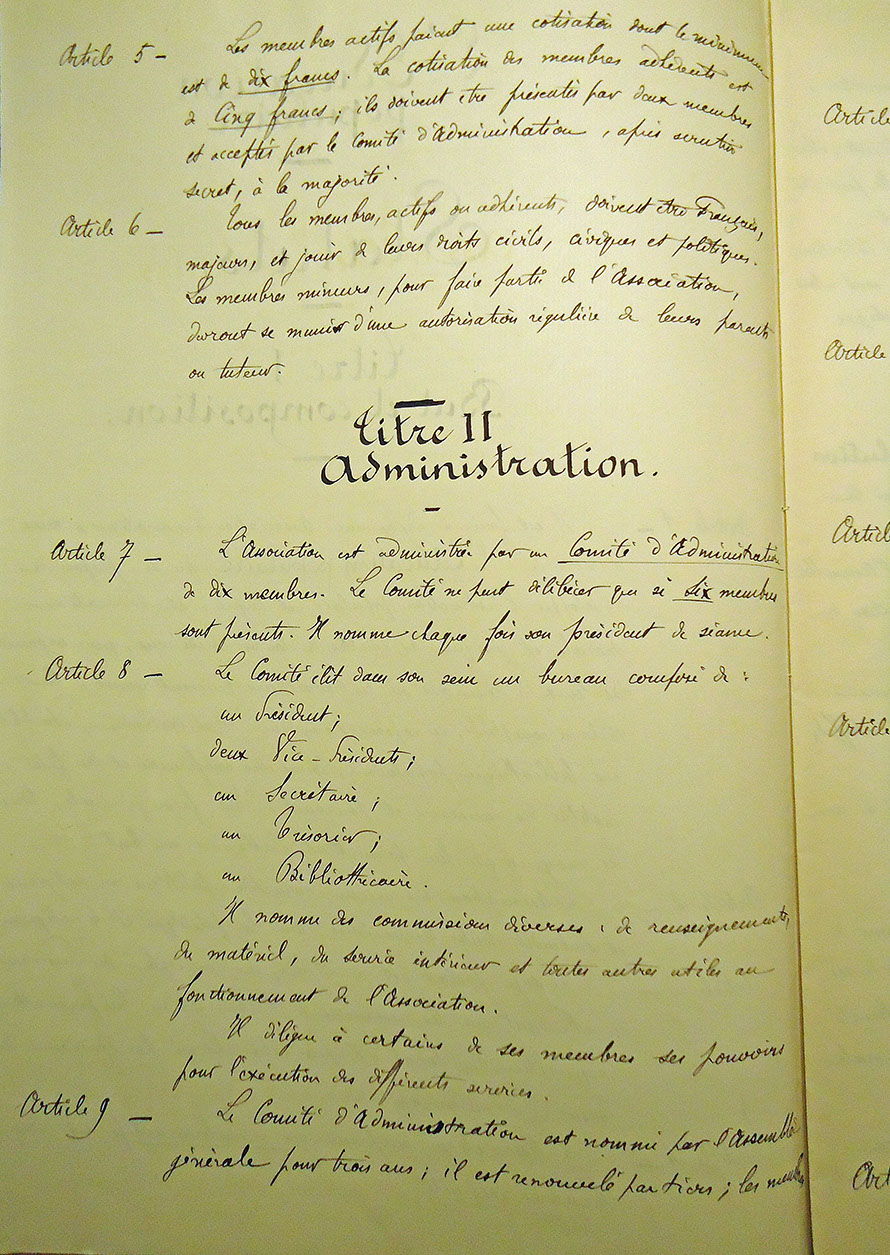 Article 5 — Les membres actifs paient une cotisation dont le minimum
est de dix francs. La cotisation des membres adhérents est
de Cinq francs ; ils doivent être présentés par deux membres
et acceptés par le Comité d'Administration, après scrutin
secret, à la majorité.
Article 6 — Tous les membres, actifs ou adhérents, doivent être Français,
majeurs, et jouir de leurs droits civils, civiques et politiques.
Les membres mineurs, pour faire partie de l'Association,
devront se munir d'une autorisation régulière de leurs parents
ou tuteur.
Titre II
Administration.
Article 7 — L'Association est administrée par un Comité d'Administration
de dix membres. Le Comité ne peut délibérer que si six membres
sont présents. Il nomme chaque fois son président de séance.
Article 8 — Le Comité élit dans son sein un bureau composé de :
un Président ;
deux Vice-Présidents ;
un Secrétaire ;
un Trésorier ;
un Bibliothécaire.
Il nomme des commissions diverses : de renseignements,
du matériel, du service intérieur et toutes autres utiles au
fonctionnement de l'Association.
Il délègue à certains de ses membres ses pouvoirs
pour l'exécution des différents services.
Article 9 — Le Comité d'Administration est nommé par l'Assemblée
générale pour trois ans ; il est renouvelé par tiers ; les membres
Article
Article
Article
Article
Art